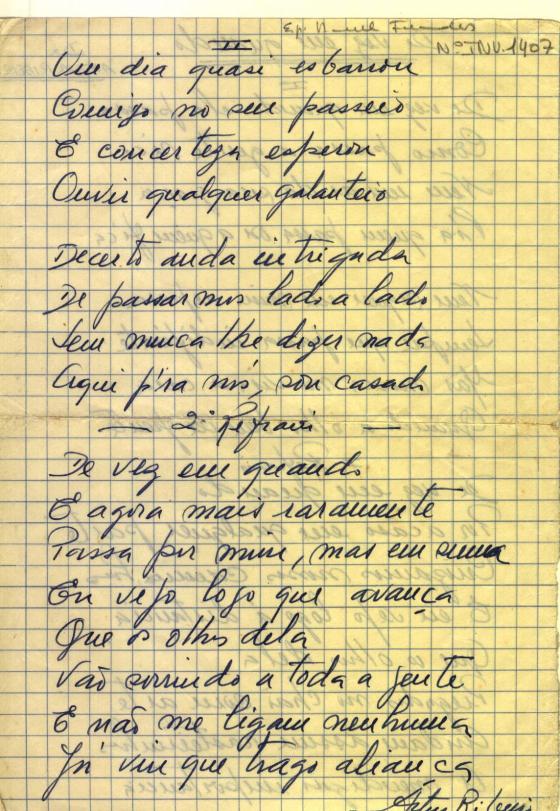 Nº INV. 1407
II
Um dia quasi esbarrou
Comigo no seu passeio
E concerteza esperou
Ouvir qualquer galanteio
Decerto anda intrigada
De passarmos lado a lado
Sem nunca lhe dizer nada
Aqui p'ra nós, sou casado
— 2º Refrain —
De vez em quando
E agora mais raramente
Passa por mim, mas em suma
Eu vejo logo que avança
Que os olhos dela
Vão sorrindo a toda a gente
E não me ligam nenhuma
Já viu que trago aliança